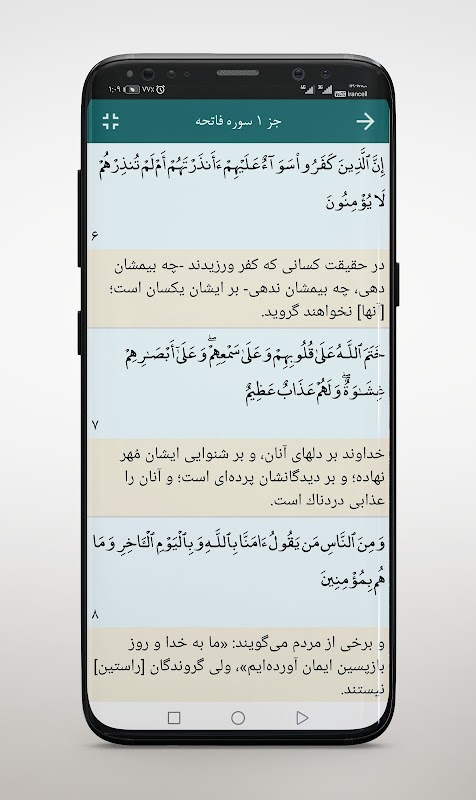 ۱:۰۹ ۷۷٪ Irancell
جز ۱ سوره فاتحه
إِنَّ ٱلَّذِينَ كَفَرُوا۟ سَوَآءٌ عَلَيْهِمْ ءَأَنذَرْتَهُمْ أَمْ لَمْ تُنذِرْهُمْ
لَا يُؤْمِنُونَ
۶
در حقیقت کسانی که کفر ورزیدند -چه بیمشان
دهی، چه بیمشان ندهی- بر ایشان یکسان است؛
[آنها] نخواهند گروید.
خَتَمَ ٱللَّـهُ عَلَىٰ قُلُوبِهِمْ وَعَلَىٰ سَمْعِهِمْ ۖ وَعَلَىٰٓ أَبْصَـٰرِهِمْ
غِشَـٰوَةٌ ۖ وَلَهُمْ عَذَابٌ عَظِيمٌ
۷
خداوند بر دلهای آنان، و بر شنوایی ایشان مُهر
نهاده؛ و بر دیدگانشان پرده‌ای است؛ و آنان را
عذابی دردناك است.
وَمِنَ ٱلنَّاسِ مَن يَقُولُ ءَامَنَّا بِٱللَّـهِ وَبِٱلْيَوْمِ ٱلْـَٔاخِرِ وَمَا
هُم بِمُؤْمِنِينَ
۸
و برخی از مردم می‌گویند: «ما به خدا و روز
بازپسین ایمان آورده‌ایم»، ولی گروندگان [راستین]
نیستند.